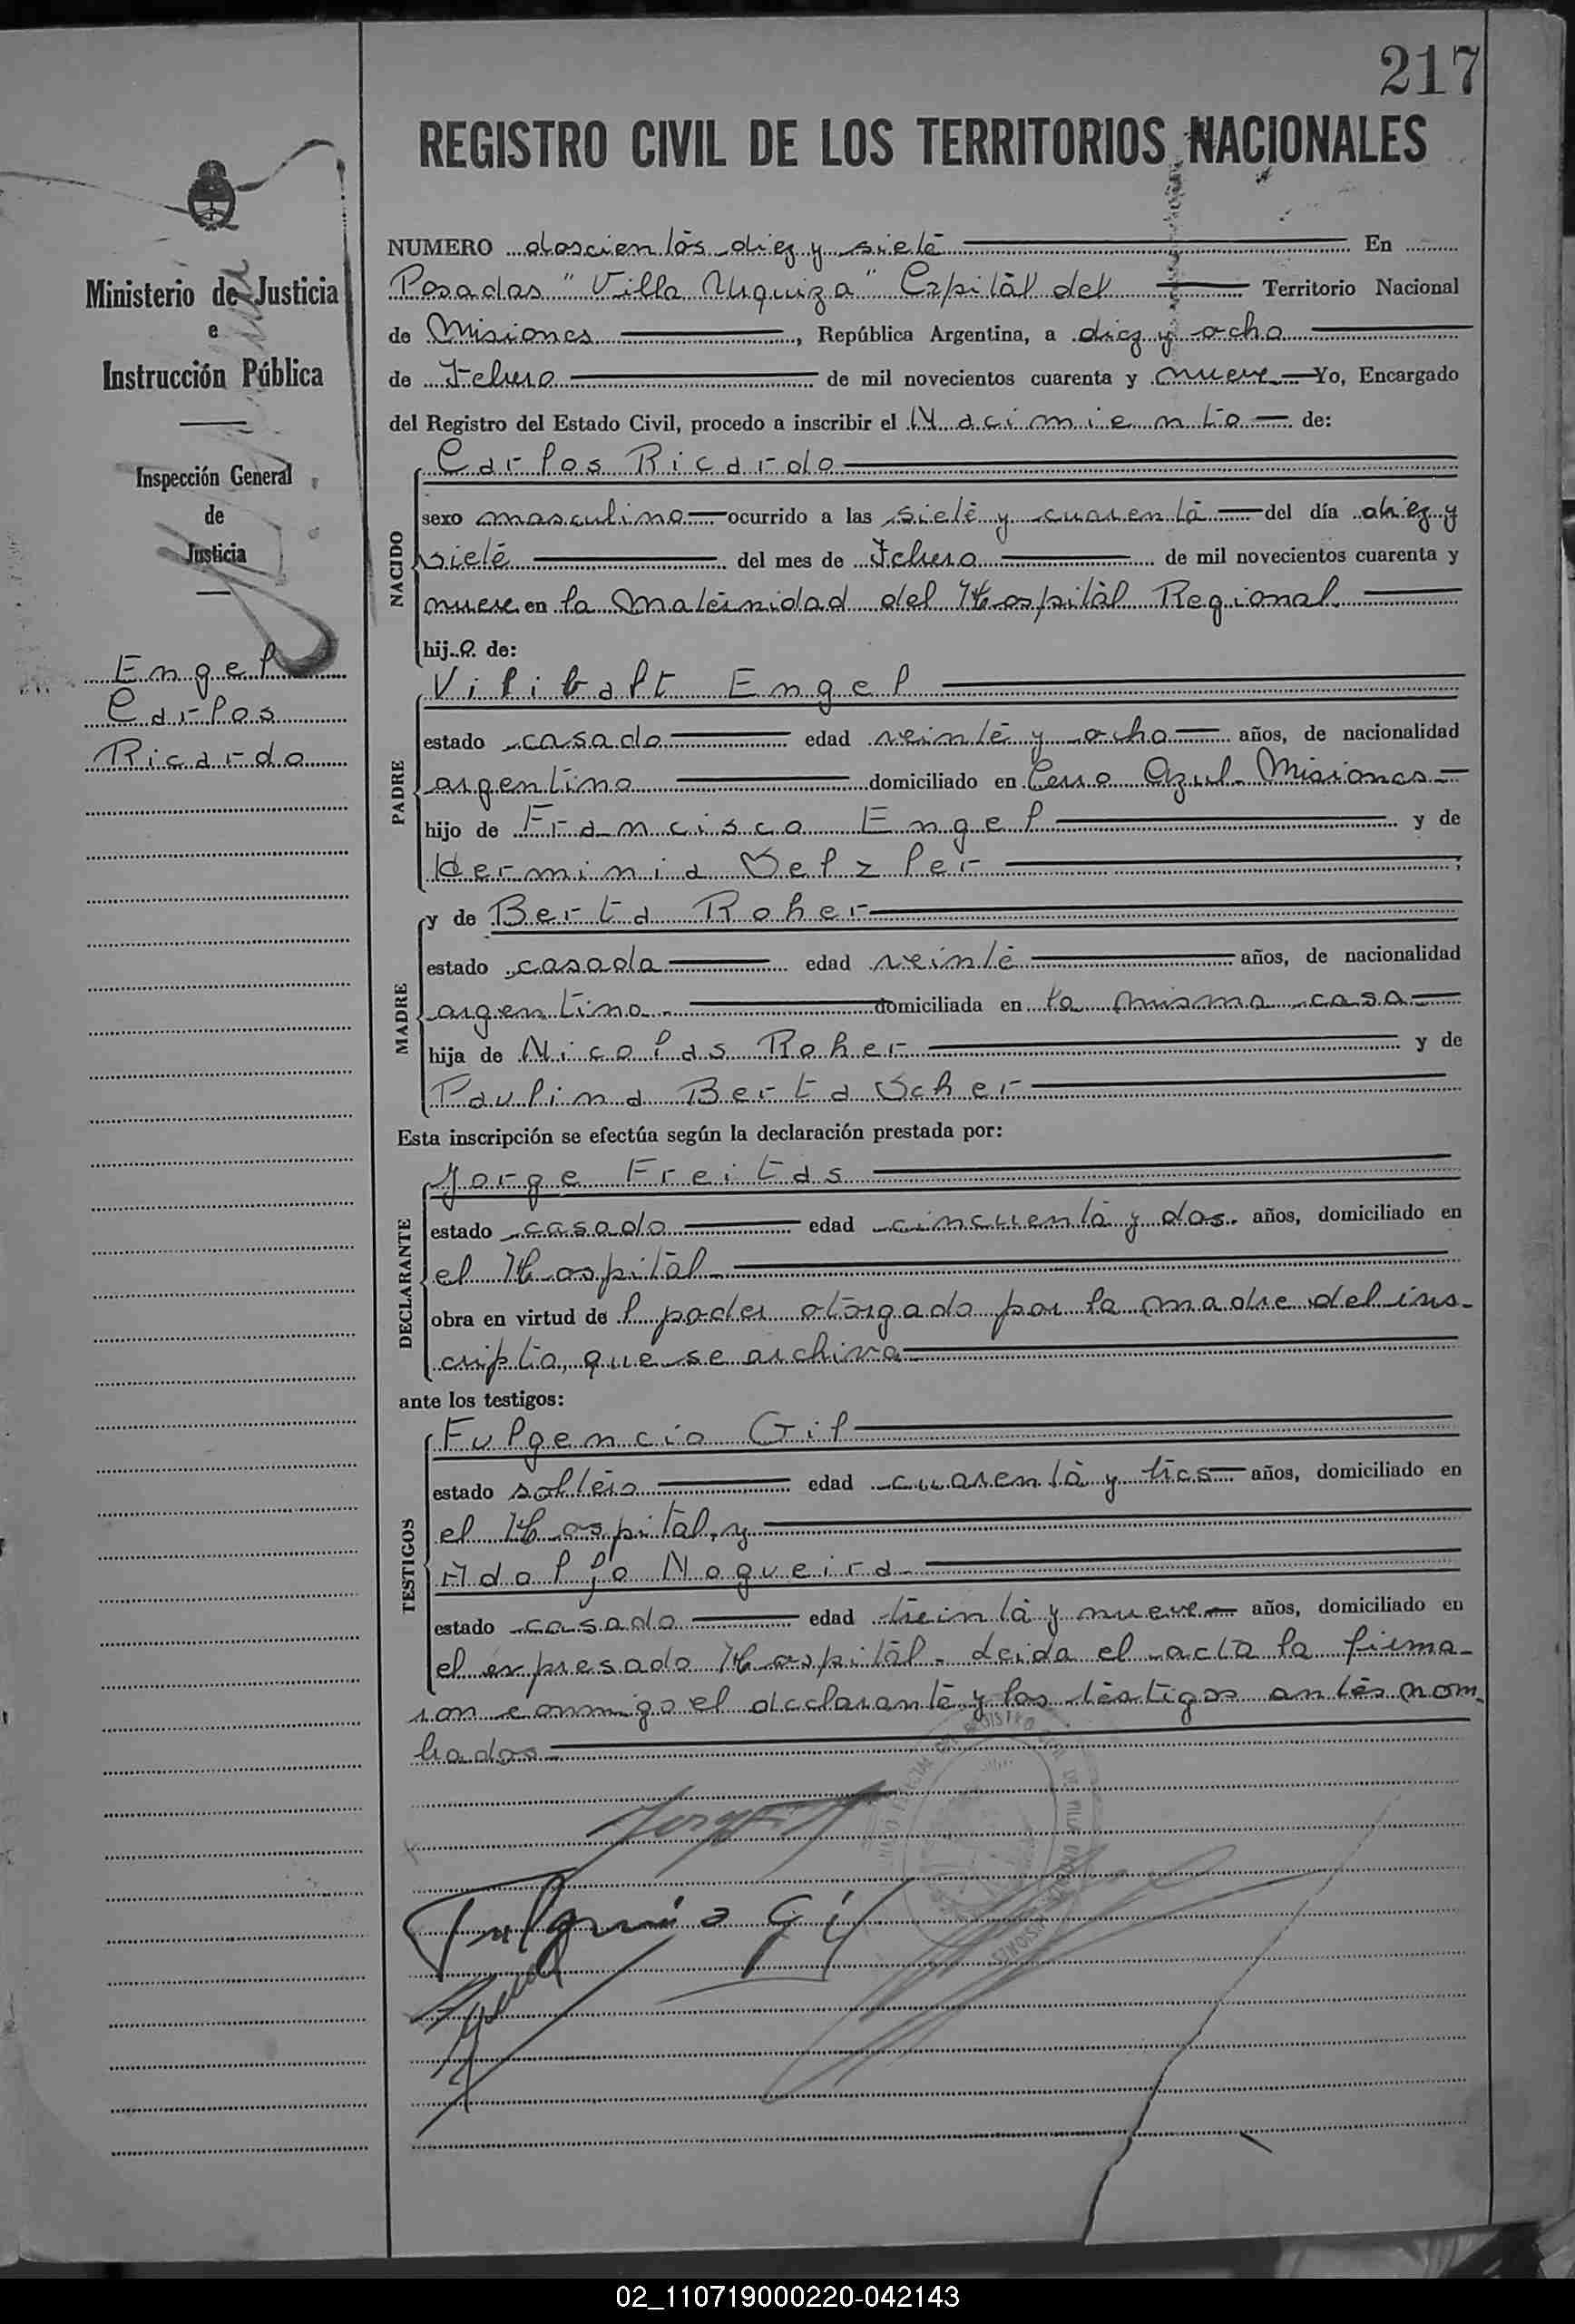 217
REGISTRO CIVIL DE LOS TERRITORIOS NACIONALES
Ministerio de Justicia
e
Instrucción Pública
Inspección General
de
Justicia
Engel
Carlos
Ricardo
NUMERO doscientos diez y siete En
Posadas "Villa Urquiza" Capital del Territorio Nacional
de Misiones, República Argentina, a diez y ocho
de Febrero de mil novecientos cuarenta y nueve Yo, Encargado
del Registro del Estado Civil, procedo a inscribir el Nacimiento de:
NACIDO
Carlos Ricardo
sexo masculino ocurrido a las siete y cuarenta del día diez y
siete del mes de Febrero de mil novecientos cuarenta y
nueve en la Maternidad del Hospital Regional
hijo de:
PADRE
Vilibalt Engel
estado casado edad veinte y ocho años, de nacionalidad
argentino domiciliado en Cerro Azul - Misiones
hijo de Francisco Engel y de
Herminia Selzler ;
MADRE
y de Berta Roher
estado casada edad veinte años, de nacionalidad
argentina domiciliada en la misma casa
hija de Nicolas Roher y de
Paulina Berta Scher
Esta inscripción se efectúa según la declaración prestada por:
DECLARANTE
Jorge Freitas
estado casado edad cincuenta y dos años, domiciliado en
el Hospital
obra en virtud de l poder otorgado por la madre del ins-
cripto, que se archiva
ante los testigos:
TESTIGOS
Fulgencio Gil
estado soltero edad cuarenta y tres años, domiciliado en
el Hospital, y
Adolfo Nogueira
estado casado edad treinta y nueve años, domiciliado en
el expresado Hospital. Leida el acta la firma-
ron conmigo el declarante y los testigos antes nom-
brados
Fulgencio Gil
02_110719000220-042143